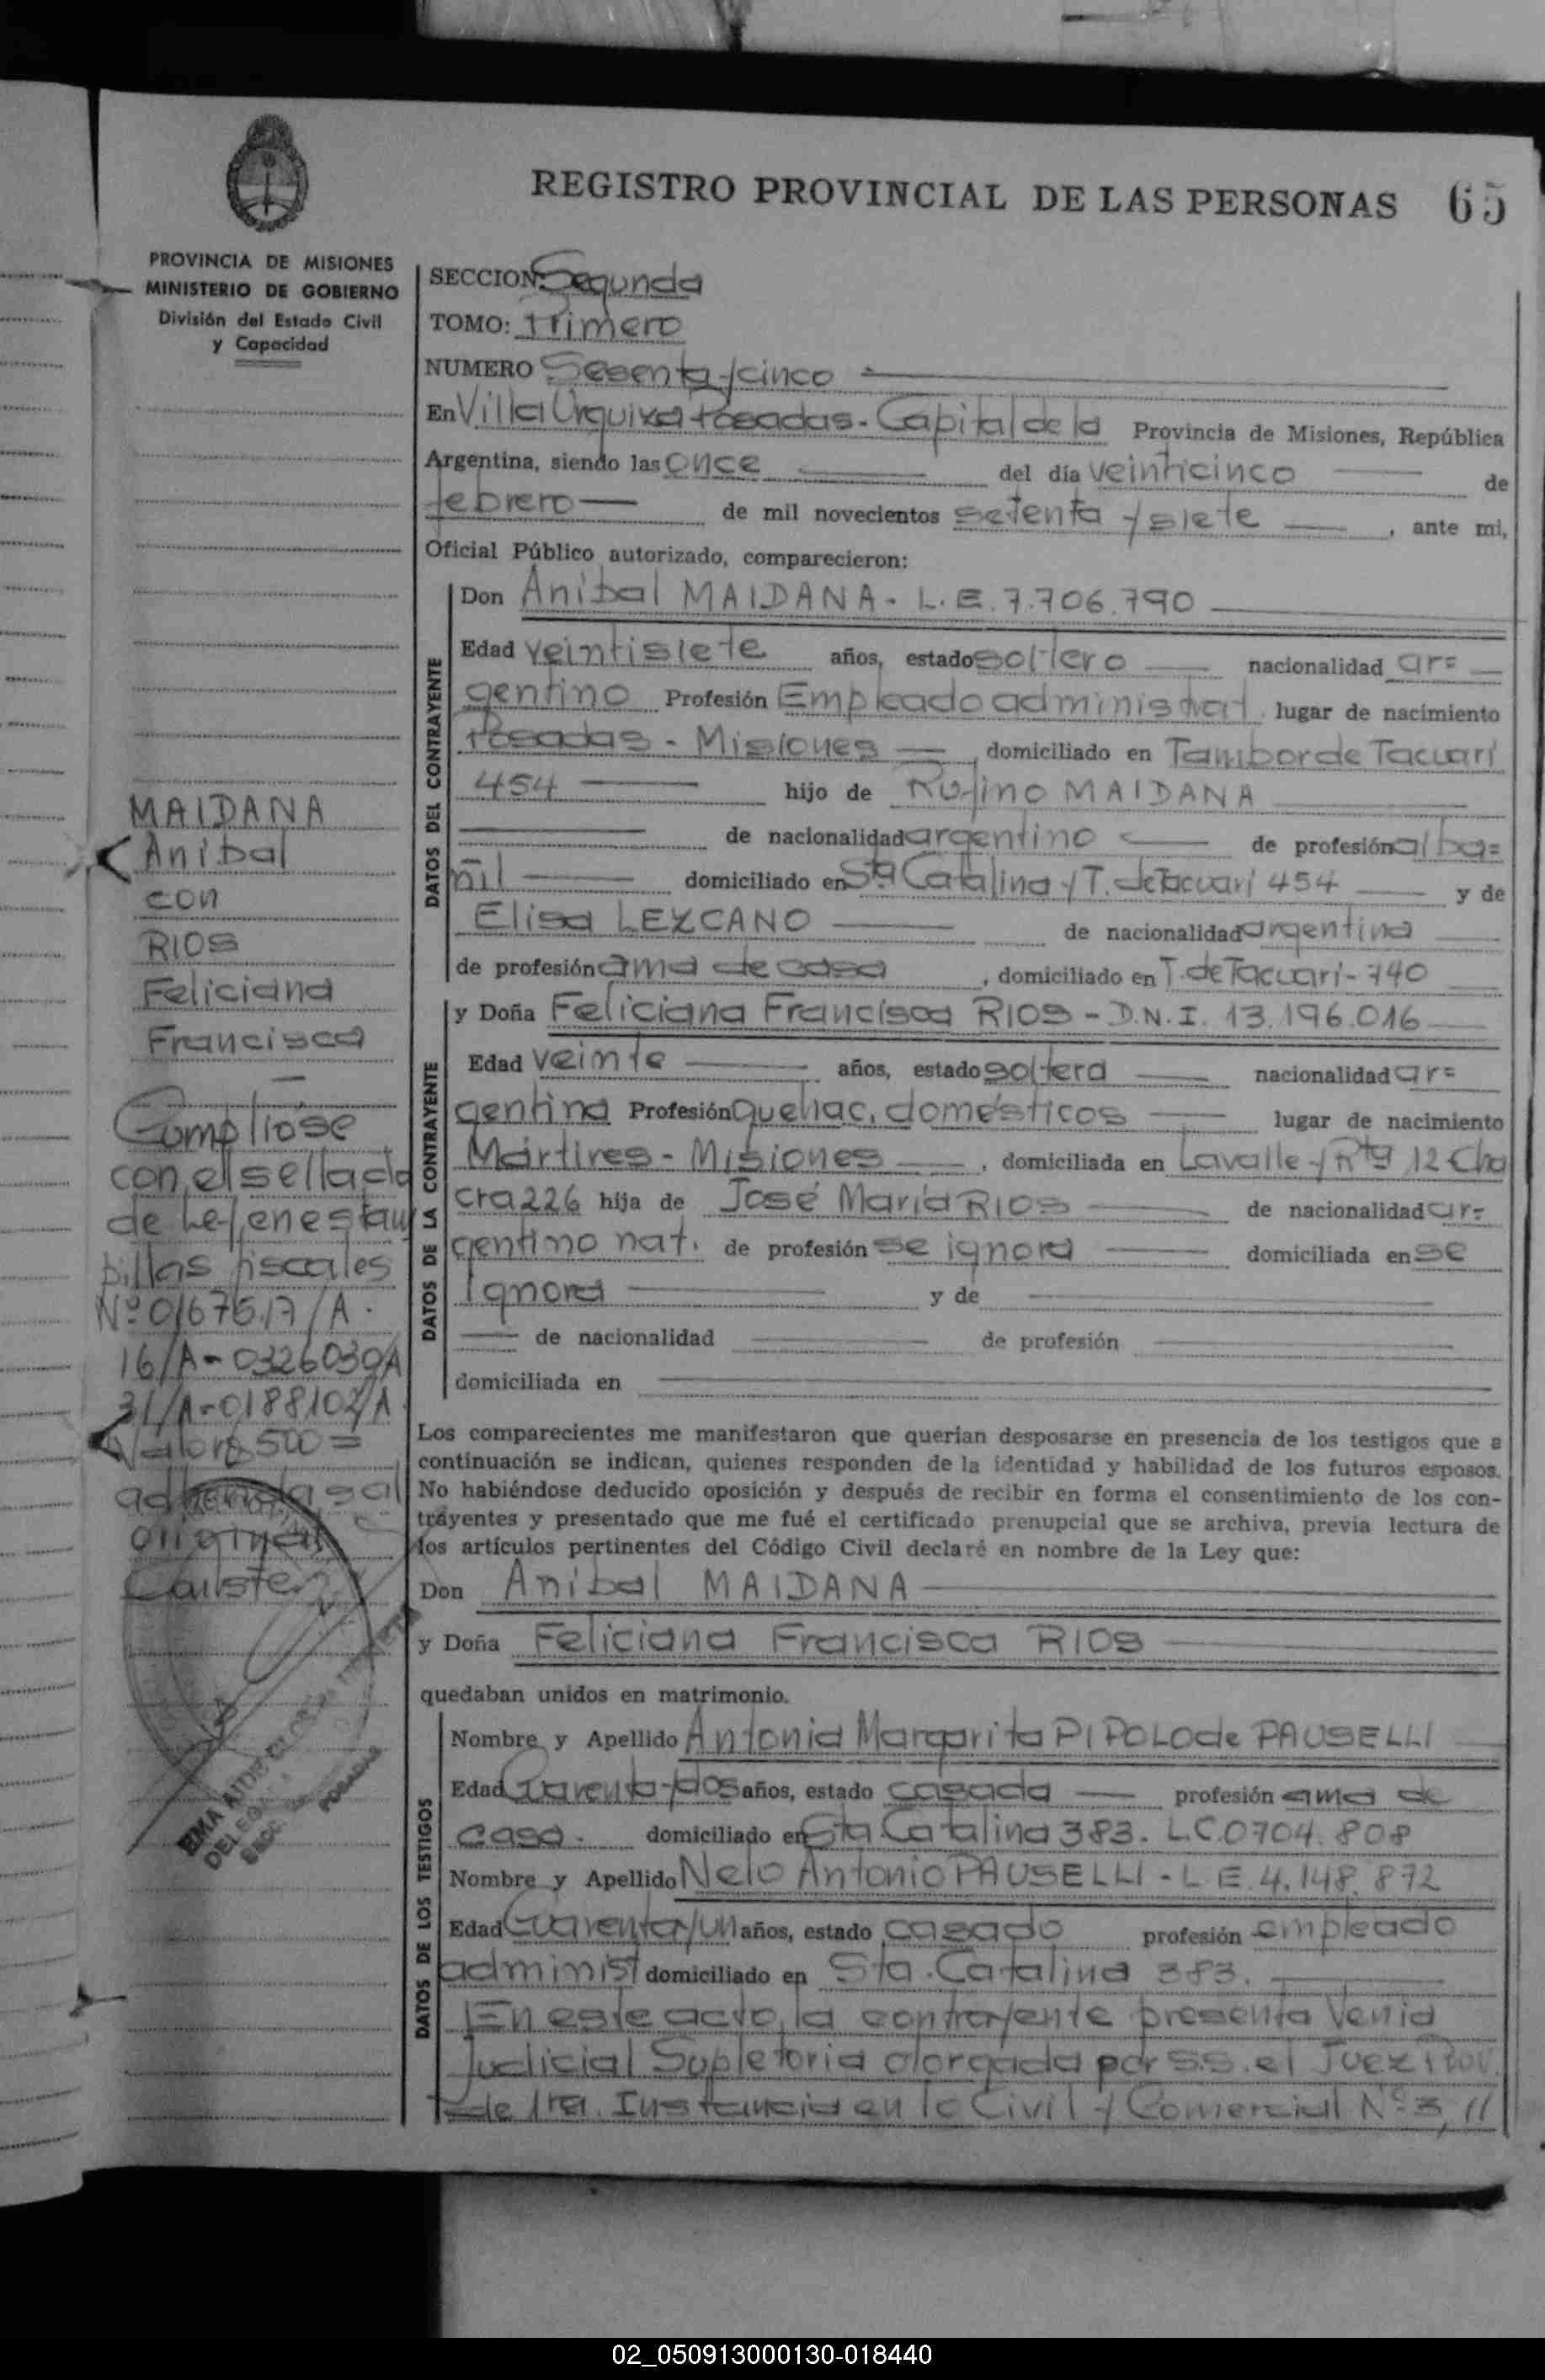 REGISTRO PROVINCIAL DE LAS PERSONAS 65
PROVINCIA DE MISIONES
MINISTERIO DE GOBIERNO
División del Estado Civil
y Capacidad
MAIDANA
Anibal
con
RIOS
Feliciana
Francisca
Cumpliose
con el sellado
de Ley en estam
pillas fiscales
Nº 0167517/A.
16/A-0326030/A
31/A-0188102/A
Valor $ 500=
adheridas al
original
EMA AIDE
POSADAS
SECCION: Segunda
TOMO: Primero
NUMERO Sesenta y cinco
En Villa Urquiza Posadas - Capital de la Provincia de Misiones, República
Argentina, siendo las once del día veinticinco de
febrero de mil novecientos setenta y siete, ante mi,
Oficial Público autorizado, comparecieron:
DATOS DEL CONTRAYENTE
Don Anibal MAIDANA - L.E. 7.706.790
Edad veintisiete años, estado soltero nacionalidad ar=
gentino Profesión Empleado administrat. lugar de nacimiento
Posadas - Misiones, domiciliado en Tambor de Tacuarí
454 hijo de Rufino MAIDANA
de nacionalidad argentino de profesión alba=
ñil domiciliado en Sta Catalina y T. de Tacuarí 454 y de
Elisa LEZCANO de nacionalidad argentina
de profesión ama de casa, domiciliado en T. de Tacuarí - 740
DATOS DE LA CONTRAYENTE
y Doña Feliciana Francisca RIOS - D.N.I. 13.196.016
Edad veinte años, estado soltera nacionalidad ar=
gentina Profesión Quehac. domésticos lugar de nacimiento
Mártires - Misiones, domiciliada en Lavalle y Rta 12 Cha
cra 226 hija de José María RIOS de nacionalidad ar=
gentino nat. de profesión se ignora domiciliada en se
ignora y de
de nacionalidad de profesión
domiciliada en
Los comparecientes me manifestaron que querian desposarse en presencia de los testigos que a
continuación se indican, quienes responden de la identidad y habilidad de los futuros esposos.
No habiéndose deducido oposición y después de recibir en forma el consentimiento de los con-
trayentes y presentado que me fué el certificado prenupcial que se archiva, previa lectura de
los artículos pertinentes del Código Civil declaré en nombre de la Ley que:
Don Anibal MAIDANA
y Doña Feliciana Francisca RIOS
quedaban unidos en matrimonio.
DATOS DE LOS TESTIGOS
Nombre y Apellido Antonia Margarita PIPOLO de PAUSELLI
Edad Cuarenta y dos años, estado casada profesión ama de
casa. domiciliado en Sta Catalina 383. L.C. 0704.808
Nombre y Apellido Nelo Antonio PAUSELLI - L.E. 4.148.872
Edad Cuarenta y un años, estado casado profesión empleado
administ domiciliado en Sta. Catalina 383.
En este acto, la contrayente presenta Venia
Judicial Supletoria otorgada por S.S. el Juez Prov.
de 1ra. Instancia en lo Civil y Comercial Nº 3, //
02_050913000130-018440